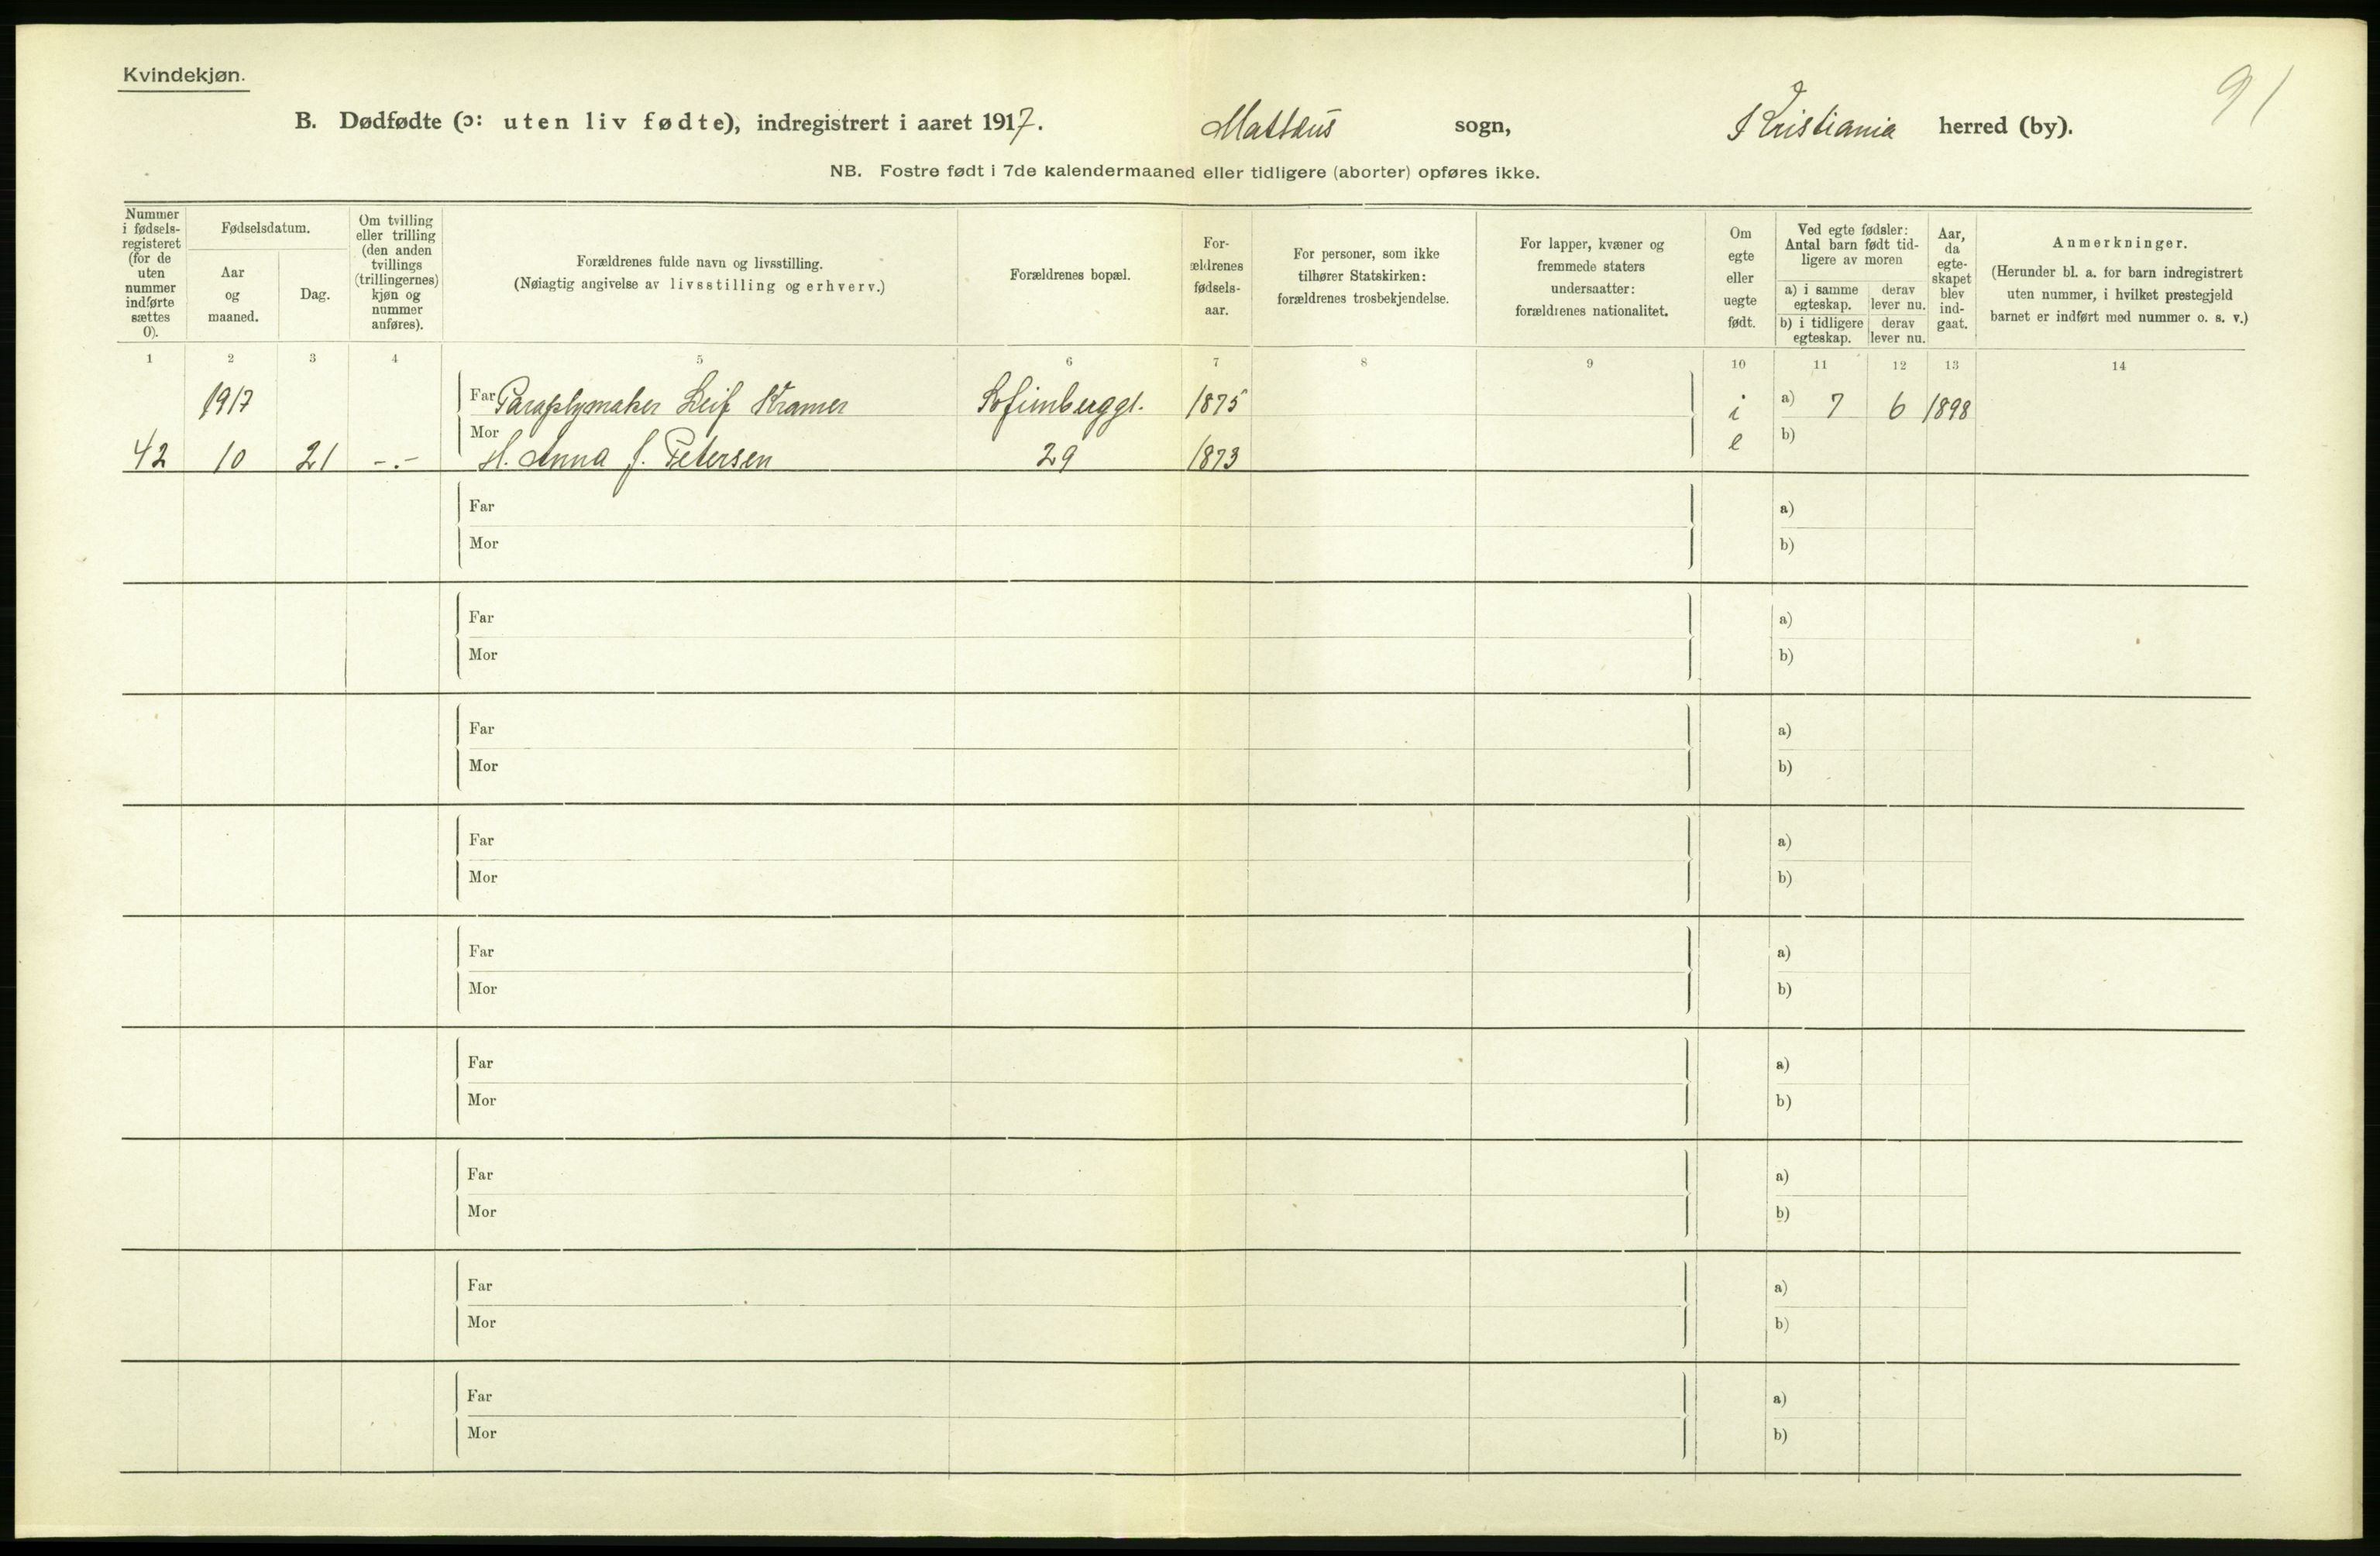 Kvindekjøn.
91
B. Dødfødte (ɔ: uten liv fødte), indregistrert i aaret 1917. Mattæus sogn, Kristiania herred (by).
NB. Fostre født i 7de kalendermaaned eller tidligere (aborter) opføres ikke.
Nummer
i fødsels-
registeret
(for de
uten
nummer
indførte
sættes
0).
Fødselsdatum.
Aar
og
maaned.
Dag.
Om tvilling
eller trilling
(den anden
tvillings
(trillingernes)
kjøn og
nummer
anføres).
Forældrenes fulde navn og livsstilling.
(Nøiagtig angivelse av livsstilling og erhverv.)
Forældrenes bopæl.
For-
ældrenes
fødsels-
aar.
For personer, som ikke
tilhører Statskirken:
forældrenes trosbekjendelse.
For lapper, kvæner og
fremmede staters
undersaatter:
forældrenes nationalitet.
Om
egte
eller
uegte
født.
Ved egte fødsler:
Antal barn født tid-
ligere av moren
a) i samme
egteskap.
derav
lever nu.
b) i tidligere
egteskap.
derav
lever nu.
Aar,
da
egte-
skapet
blev
ind-
gaat.
Anmerkninger.
(Herunder bl. a. for barn indregistrert
uten nummer, i hvilket prestegjeld
barnet er indført med nummer o. s. v.)
1 2 3 4 5 6 7 8 9 10 11 12 13 14
1917 Far Paraplymaker Leif Kramer Sofienberggt. 1875 i a) 7 6 1898
42 10 21 -.- Mor H. Anna J. Petersen 29 1873 e b)
Far a)
Mor b)
Far a)
Mor b)
Far a)
Mor b)
Far a)
Mor b)
Far a)
Mor b)
Far a)
Mor b)
Far a)
Mor b)
Far a)
Mor b)
Far a)
Mor b)